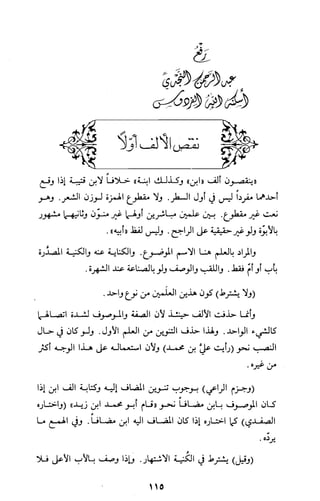 رفع
عبد الرحمن النجدي
أسكنه الله الفردوس
نقص الألف أولاً
«ينقصون ألف «ابن» وكذلك ابنة» خلافاً لابن قتيبة إذا وقع
أحدهما مفرداً ليس في أول السطر. ولا مقطوع الهمزة لوزن الشعر. وهو
نعت غير مقطوع. بين علمين مباشرين أولهما غير منوّن وثانيهما مشهور
بالأبوّة ولو غير حقيقية على الراجح. وليس لفظ «أبيه».
والمراد بالعلم هنا الاسم الموضوع. والكناية عنه والكنية المصدّرة
بأب أو أم فقط. واللقب والوصف ولو بالصناعة عند الشهرة.
(ولا يشترط) كون هذين العلمين من نوع واحد.
وأنما حذفت الألف حينئذ لأن الصفة والموصوف لشدة اتصالهما
كالشيء الواحد. ولهذا حذف التنوين من العلم الأول. ولو كان في حال
النصب نحو (رأيت عليَّ بن محمد) ولأن استعماله على هذا الوجه أكثر
من غيره.
(وجزم الراعي) بوجوب تنوين المضاف إليه وكتابة الف ابن إذا
كان الموصوف بابن مضافاً نحو «قام أبو محمد ابن زيد» (واختاره
الصفدي) كما اختاره إذا كان المضاف اليه ابن مضافاً. وفي الهمع ما
يردّه.
(وقيل) يشترط في الكُنية الاشتهار. وإذا وصف بالأب الأعلى فلا
١١٥